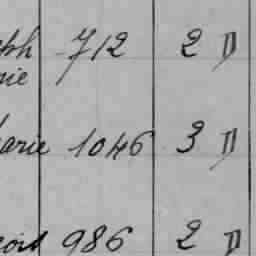 eph 712 2 D
nie
arie 1046 3 D
986 2 D